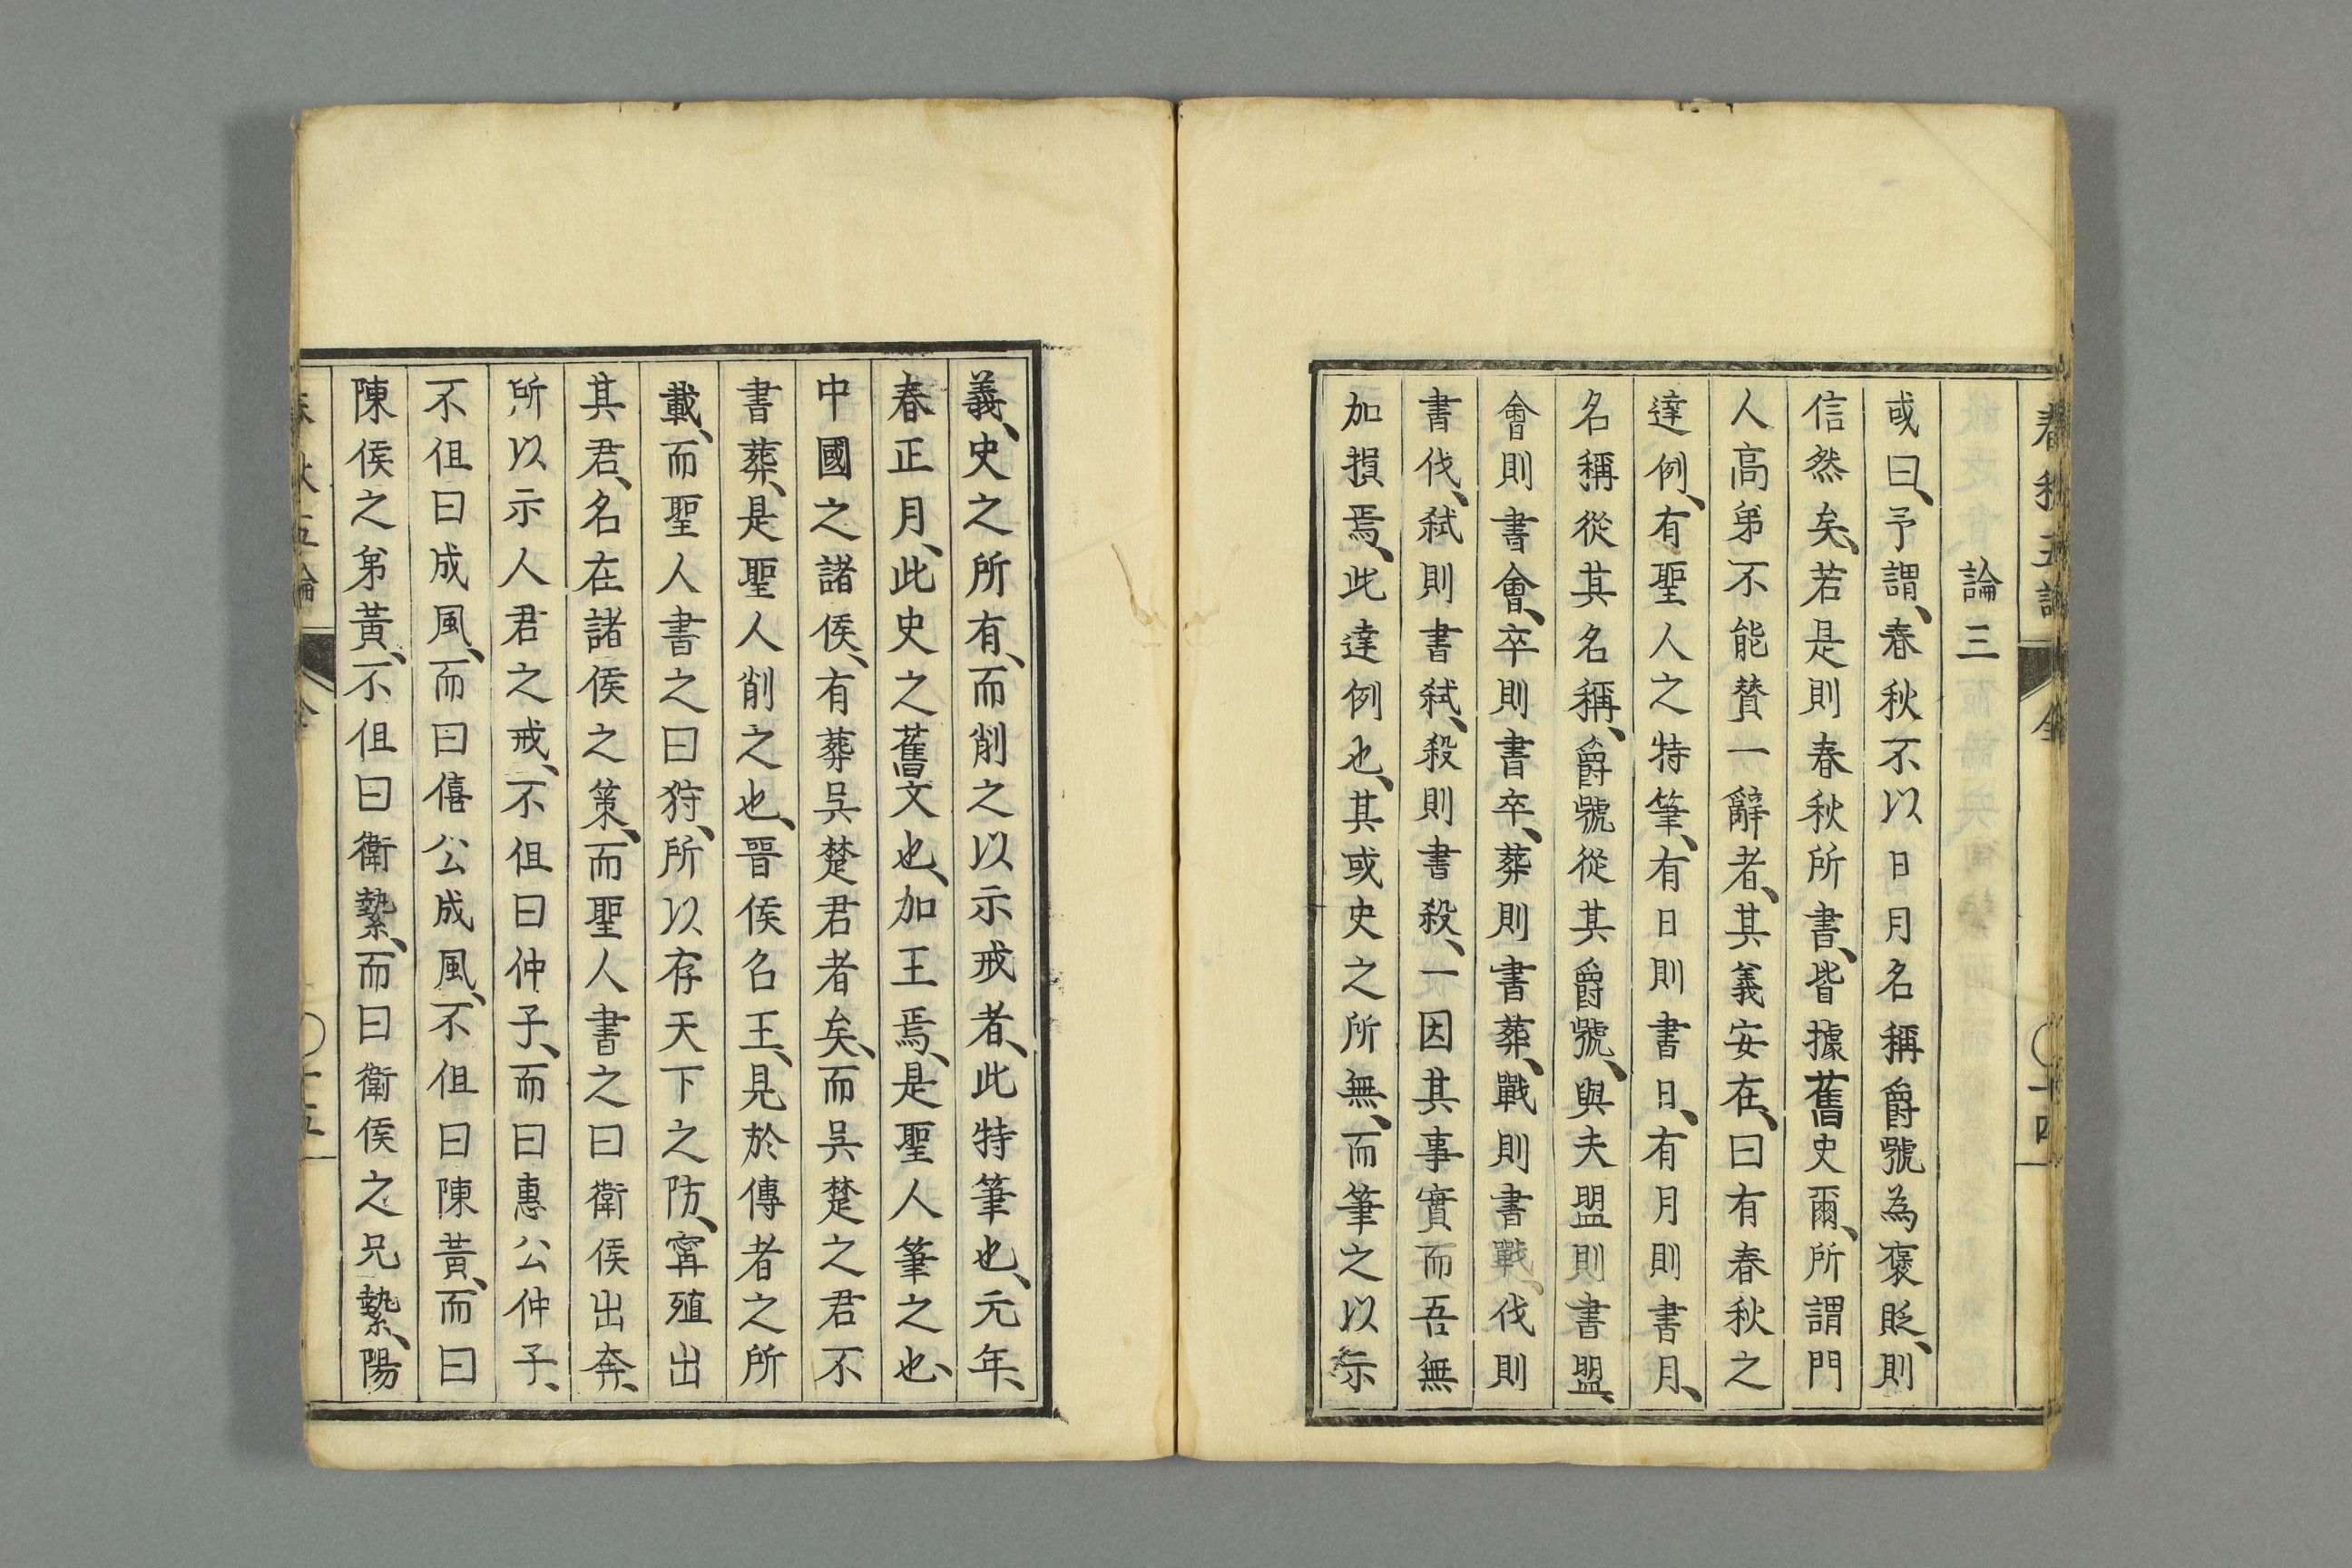 春秋五論 全 〇十四
論三
或曰、予謂、春秋不以日月名稱爵號為褒貶、則
信然矣、若是則春秋所書、皆據舊史爾、所謂門
人高弟不能賛一辭者、其義安在、曰有春秋之
達例、有聖人之特筆、有日則書日、有月則書月、
名稱從其名稱、爵號從其爵號、與夫盟則書盟、
會則書會、卒則書卒、葬則書葬、戰則書戰、伐則
書伐、弑則書弑、殺則書殺、一因其事實而吾無
加損焉、此達例也、其或史之所無、而筆之以示
義、史之所有、而削之以示戒者、此特筆也、元年、
春正月、此史之舊文也、加王焉、是聖人筆之也、
中國之諸侯、有葬吳楚君者矣、而吳楚之君不
書葬、是聖人削之也、晉侯召王、見於傳者之所
載、而聖人書之曰狩、所以存天下之防、寗殖出
其君、名在諸侯之策、而聖人書之曰衛侯出奔、
所以示人君之戒、不但曰仲子、而曰惠公仲子、
不但曰成風、而曰僖公成風、不但曰陳黃、而曰
陳侯之弟黃、不但曰衛縶、而曰衛侯之兄縶、陽
秋五論 全 〇十五